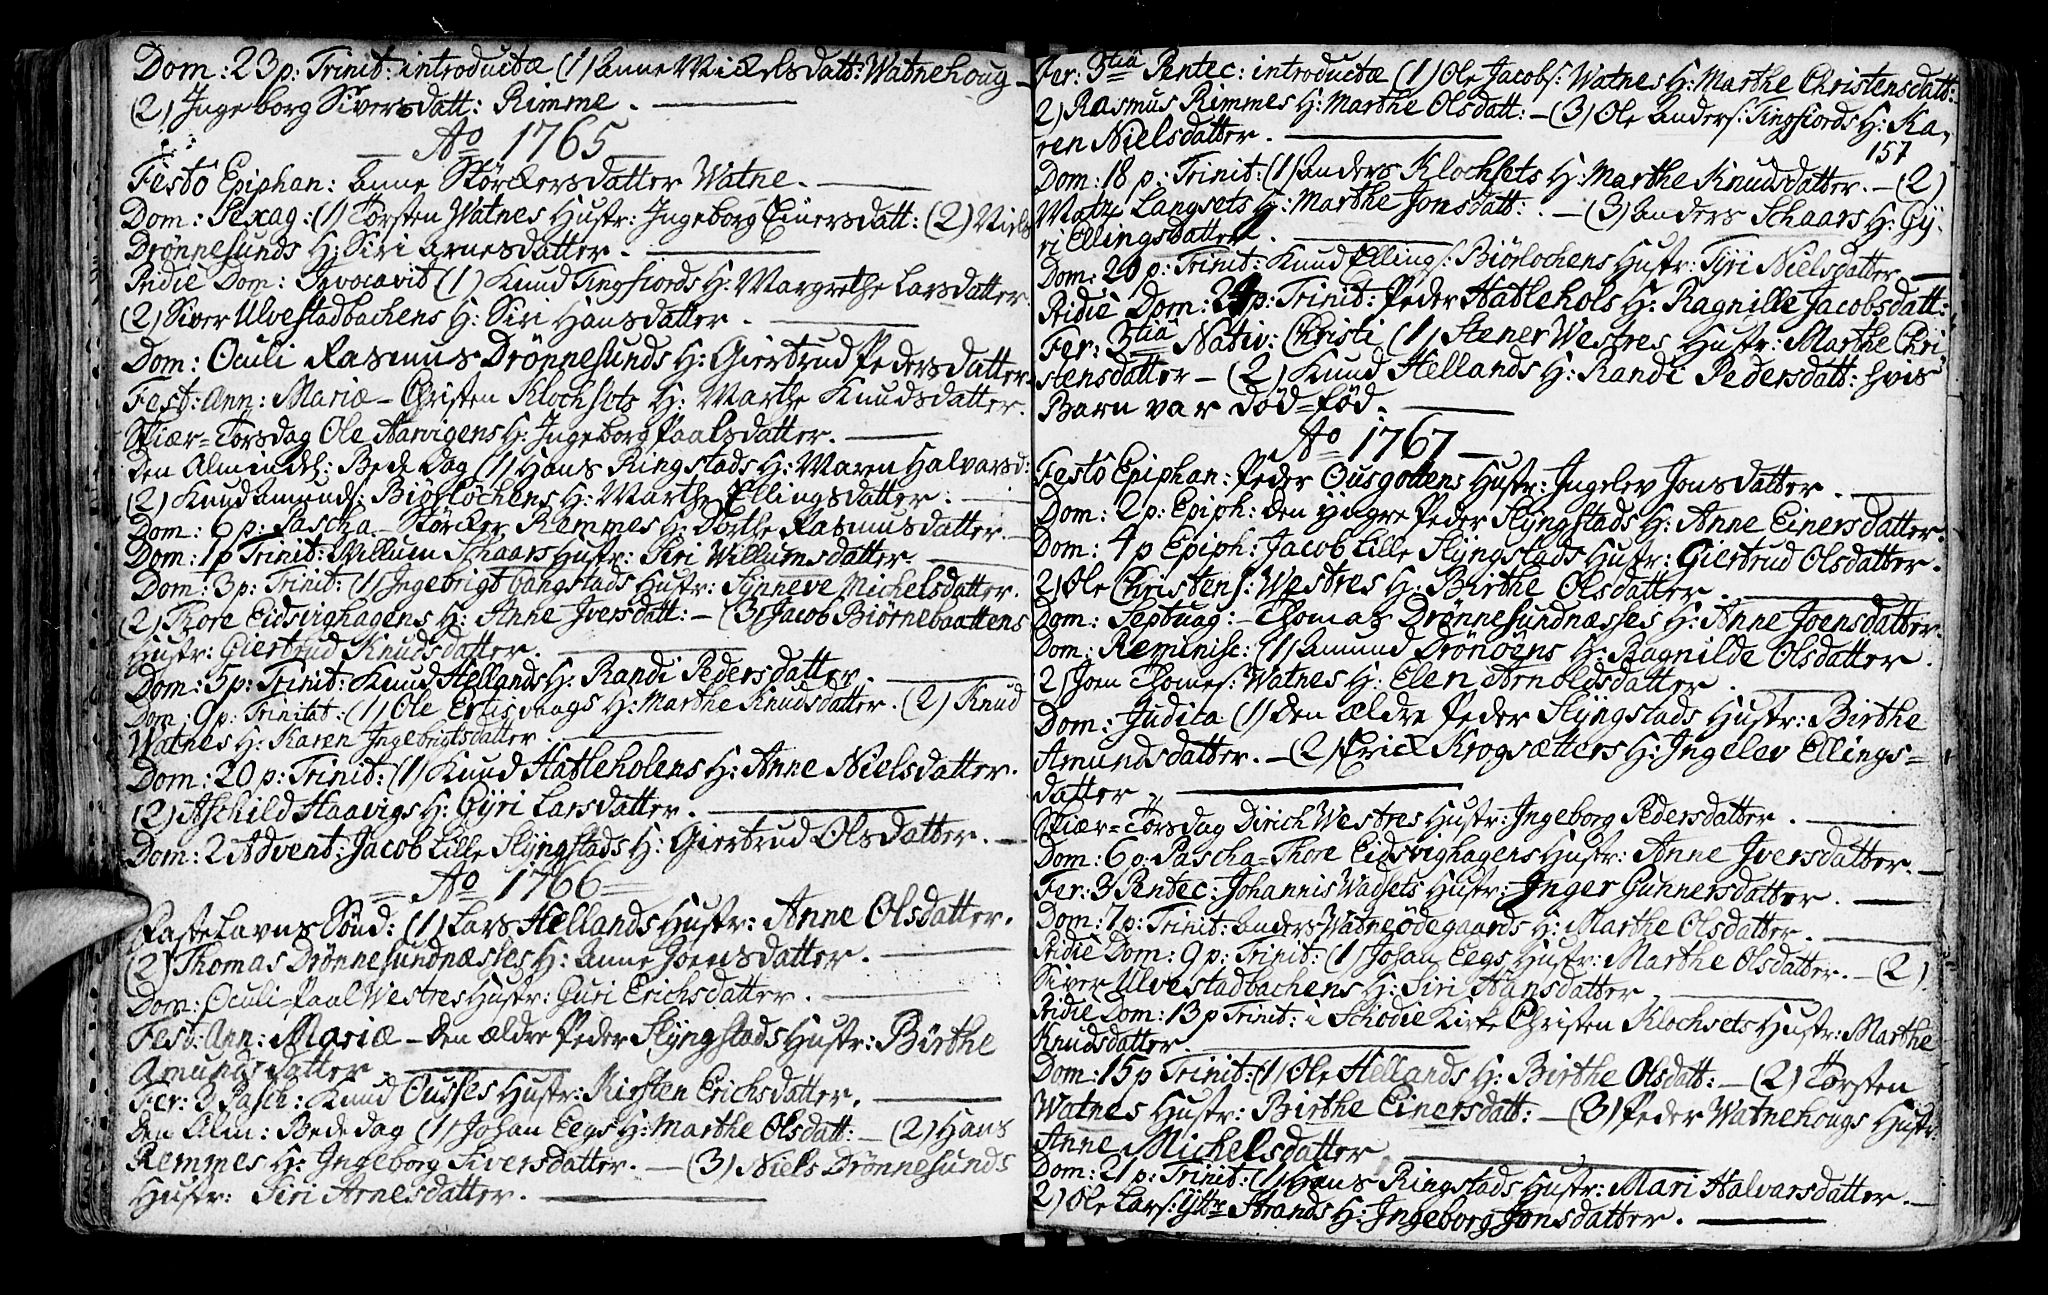 Dom: 23 p: Trinit: introductæ (1) Anne Mickelsdatt: Watnehoug –
(2) Ingeborg Siversdatt: Rimme. —
— Ao 1765 —
Festo Epiphan: Anne Störckersdatter Watne. —
Dom: Sexag: (1) Torsten Watnes Hustr: Ingeborg Einersdatt: (2) Niels
Drønnesunds H: Siri Arnesdatter. —
Pridie Dom: Invocavit (1) Knud Tingfiords H: Margrethe Larsdatter.
(2) Siver Ulvestadbachens H: Siri Hansdatter. —
Dom: Oculi Rasmus Drønnesunds H: Giertrud Pedersdatter.
Fest: Ann: Mariæ – Christen Klochsets H: Marthe Knudsdatter.
Skiær=Torsdag Ole Aarvigens H: Ingeborg Paalsdatter. —
den Almindel: Bede Dag (1) Hans Ringstads H: Maren Halvarsd:
(2) Knud Amunds: Biörlochens H: Marthe Ellingsdatter. —
Dom: 6 p: Pascha – Störcker Remmes H: Dorthe Rasmusdatter. —
Dom: 1 p Trinit: Willum Schaars Hustr: Siri Willumsdatter. —
Dom: 3 p: Trinit: (1) Ingebrigt Gangstads Hustr: Synneve Michelsdatter.
(2) Thore Eidsvighagens H: Anne Iversdatt: – (3) Jacob Biørnebaattens
Hustr: Giertrud Knudsdatter. —
Dom: 5 p: Trinit: Knud Hellands H: Randi Pedersdatter. —
Dom: 9 p: Trinitat: (1) Ole Ertisvaags H: Marthe Knudsdatter. (2) Knud
Watnes H: Karen Ingebrigtsdatter. —
Dom: 20 p: Trinit: (1) Knud Hatleholens H: Anne Nielsdatter.
(2) Aschild Haavigs H: Gÿri Larsdatter. —
Dom: 2 Advent: Jacob Lille Slÿngstads H: Giertrud Olsdatter. —
= Ao 1766 =
Fastelavns Sønd: (1) Lars Hellands Hustr: Anne Olsdatter.
(2) Thomas Drønnesundnæsses H: Anne Joensdatter. —
Dom: Oculi – Paal Westres Hustr: Guri Erichsdatter. —
Fest: Ann: Mariæ – den ældre Peder Slÿngstads Hustr: Birthe
Amundsdatter. —
Fer: 3 Pasch: Knud Ousses Hustr: Kirsten Erichsdatter. —
den Alm: Bededag (1) Johan Eegs H: Marthe Olsdatt: – (2) Hans
Remmes H: Ingeborg Siversdatter. — (3) Niels Drønnesunds
Hustr: Siri Arnesdatter. —
Fer: 3tiâ Pentec: introductæ (1) Ole Jacobs: Watnes H: Marthe Christensdatt:
2) Rasmus Rimmes H: Marthe Olsdatt: – (3) Ole Anders: Tingfiords H: Ka-
ren Nielsdatter. —
157
Dom: 18 p: Trinit: (1) Anders Klochsets H: Marthe Knudsdatter. – (2)
Langsets H: Marthe Jonsdatt: . – (3) Anders Schaars H: Gÿ-
ri Ellingsdatter. —
Dom: 20 p: Trinit: Knud Ellings: Biörlochens Hustr: Gyri Nielsdatter. —
Pridie Dom: p: Trinit: Peder Hatlehols H: Ragnille Jacobsdatt:
Fer: 3tiâ Nativ: Christi (1) Stener Westres Hustr: Marthe Chri
stensdatter – (2) Knud Hellands H: Randi Pedersdatt: hvis
Barn var död=föd. —
Ao 1767 —
Festo Epiphan: Peder Ousgottens Hustr: Ingelev Jonsdatter. —
Dom: 2 p: Epiph: den ÿngre Peder Slÿngstads H: Anne Einersdatter.
Dom: 4 p Epiph: Jacob Lille Slÿngstads Hustr: Giertrud Olsdatter.
2) Ole Christens: Westres H: Birthe Olsdatter. —
Dom: Septuag: – Thomas Drønnesundnæsses H: Anne Joensdatter.
Dom: Reminisc: (1) Amund Drönöens H: Ragnilde Olsdatter.
2) Joen Thomes: Watnes H: Elen Arnoldsdatter. —
Dom: Judica (1) den ældre Peder Slÿngstads Hustr: Birthe
Amundsdatter. – (2) Erick Krogsætters H: Ingelev Ellings=
datter. —
Skiær=Torsdag Dirich Westres Hustr: Ingeborg Pedersdatter. —
Dom: 6 p: Pascha = Thore Eidsvighagens Hustr: Anne Iversdatter. —
Fer: 3 Pentec: Johannis Wadsets Hustr: Inger Gunnersdatter. —
Dom: 7 p: Trinit: Anders Watneödegaards H: Marthe Olsdatter. —
Pridie Dom: 9 p: Trinit: (1) Johan Eegs Hustr: Marthe Olsdatter. – (2)
Siver Ulvestadbachens H: Siri Hansdatter. —
Pridie Dom: 13 p Trinit: i Schodie Kirke Christen Klochsets Hustr: Marthe
Knudsdatter. —
Dom: 15 p Trinit: (1) Ole Hellands H: Birthe Olsdatt: – (2) Torsten
Watnes Hustr: Birthe Einersdatt: – (3) Peder Watnehougs Hustr:
Anne Michelsdatter —
Dom: 21 p: Trinit: (1) Hans Ringstads Hustr: Mari Halvarsdatter. —
2) Ole Lars: Ÿttre Strands H: Ingeborg Jonsdatter. —